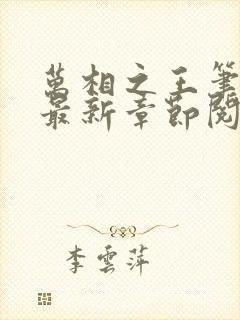 萬相之王筆
最新章節閱
李雲萍